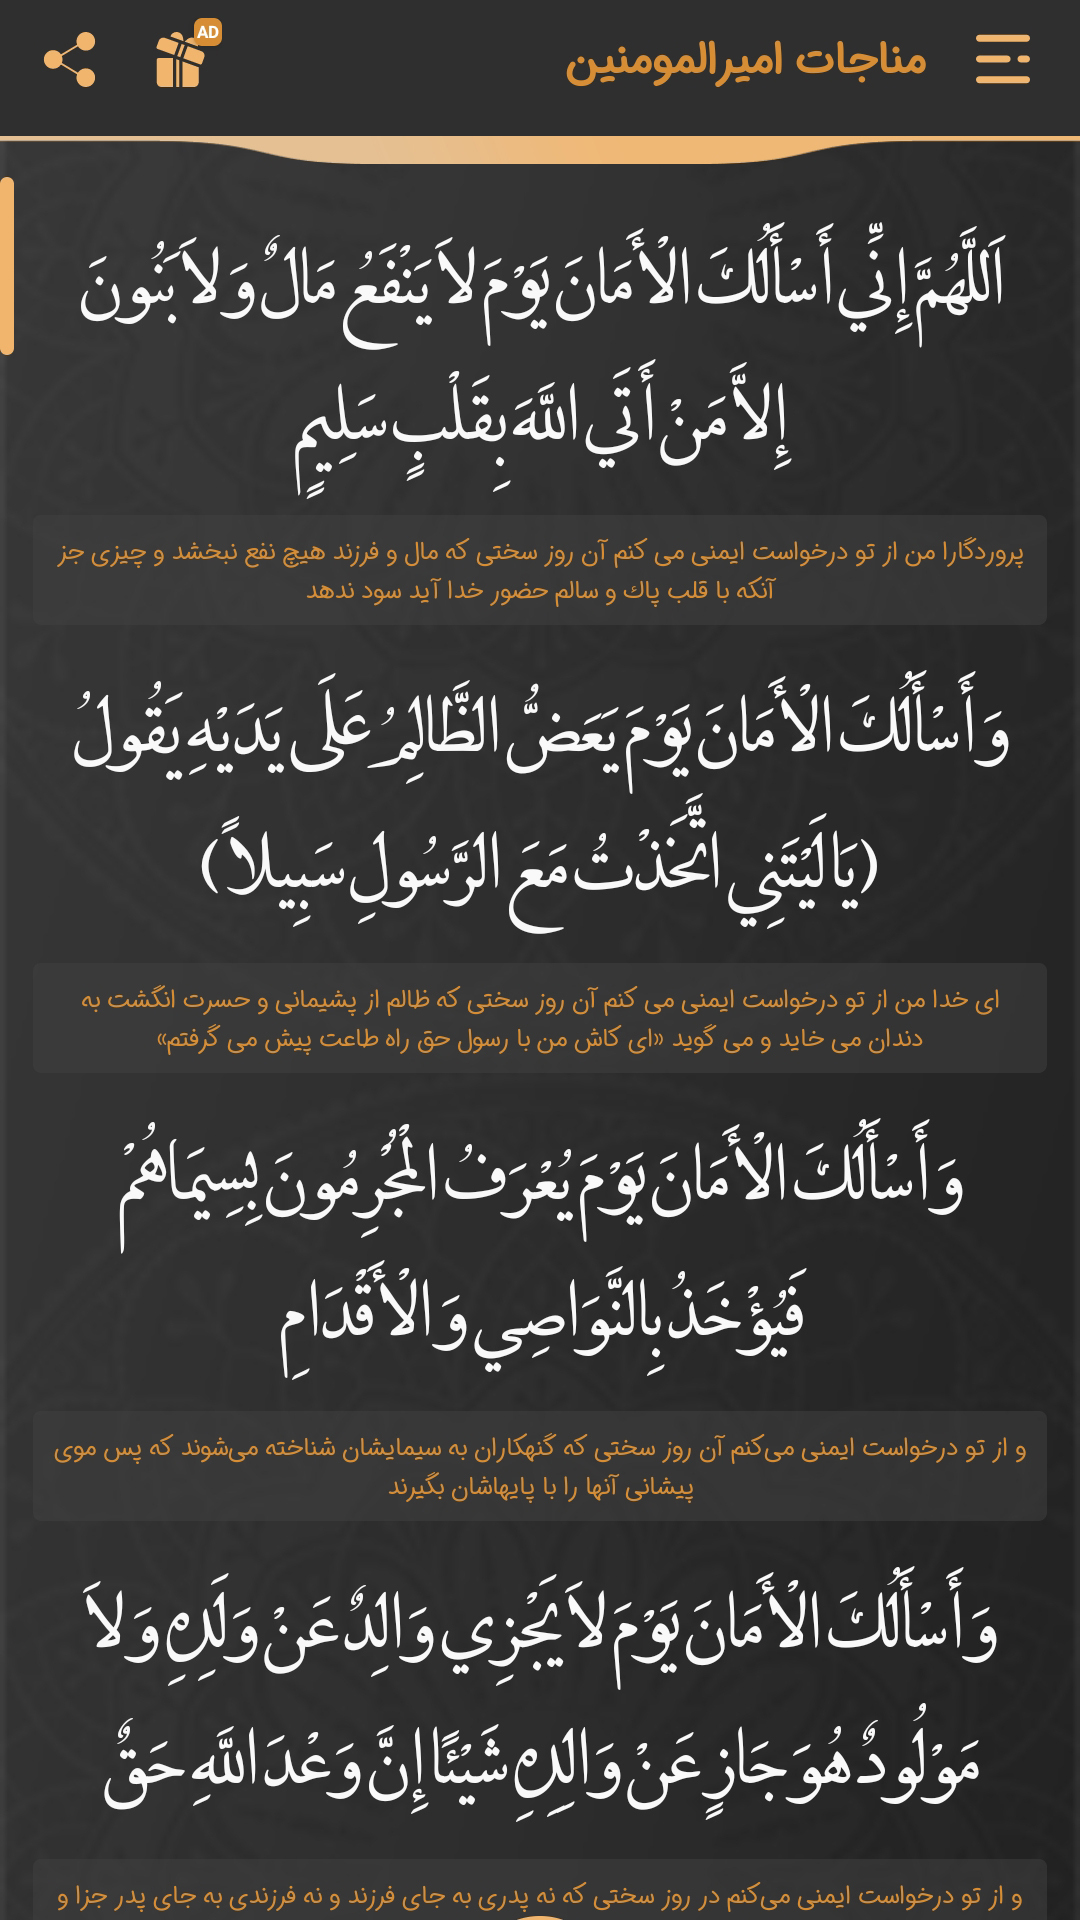 مناجات امیرالمومنین
AD
اَللَّهُمَّ إِنِّي أَسْأَلُكَ الْأَمَانَ يَوْمَ لاَ يَنْفَعُ مَالٌ وَ لاَ بَنُونَ
إِلاَّ مَنْ أَتَي اللَّهَ بِقَلْبٍ سَلِيمٍ
پروردگارا من از تو درخواست ایمنی می کنم آن روز سختی که مال و فرزند هیچ نفع نبخشد و چیزی جز
آنکه با قلب پاك و سالم حضور خدا آید سود ندهد
وَ أَسْأَلُكَ الْأَمَانَ يَوْمَ يَعَضُّ الظَّالِمُ عَلَى يَدَيْهِ يَقُولُ
(يَا لَيْتَنِي اتَّخَذْتُ مَعَ الرَّسُولِ سَبِيلاً)
ای خدا من از تو درخواست ایمنی می کنم آن روز سختی که ظالم از پشیمانی و حسرت انگشت به
دندان می خاید و می گوید «ای کاش من با رسول حق راه طاعت پیش می گرفتم»
وَ أَسْأَلُكَ الْأَمَانَ يَوْمَ يُعْرَفُ الْمُجْرِمُونَ بِسِيمَاهُمْ
فَيُؤْخَذُ بِالنَّوَاصِي وَ الْأَقْدَامِ
و از تو درخواست ایمنی می‌کنم آن روز سختی که گنهکاران به سیمایشان شناخته می‌شوند که پس موی
پیشانی آنها را با پایهاشان بگیرند
وَ أَسْأَلُكَ الْأَمَانَ يَوْمَ لاَ يَجْزِي وَالِدٌ عَنْ وَلَدِهِ وَ لاَ
مَوْلُودٌ هُوَ جَازٍ عَنْ وَالِدِهِ شَيْئًا إِنَّ وَعْدَ اللَّهِ حَقٌ
و از تو درخواست ایمنی می‌کنم در روز سختی که نه پدری به جای فرزند و نه فرزندی به جای پدر جزا و